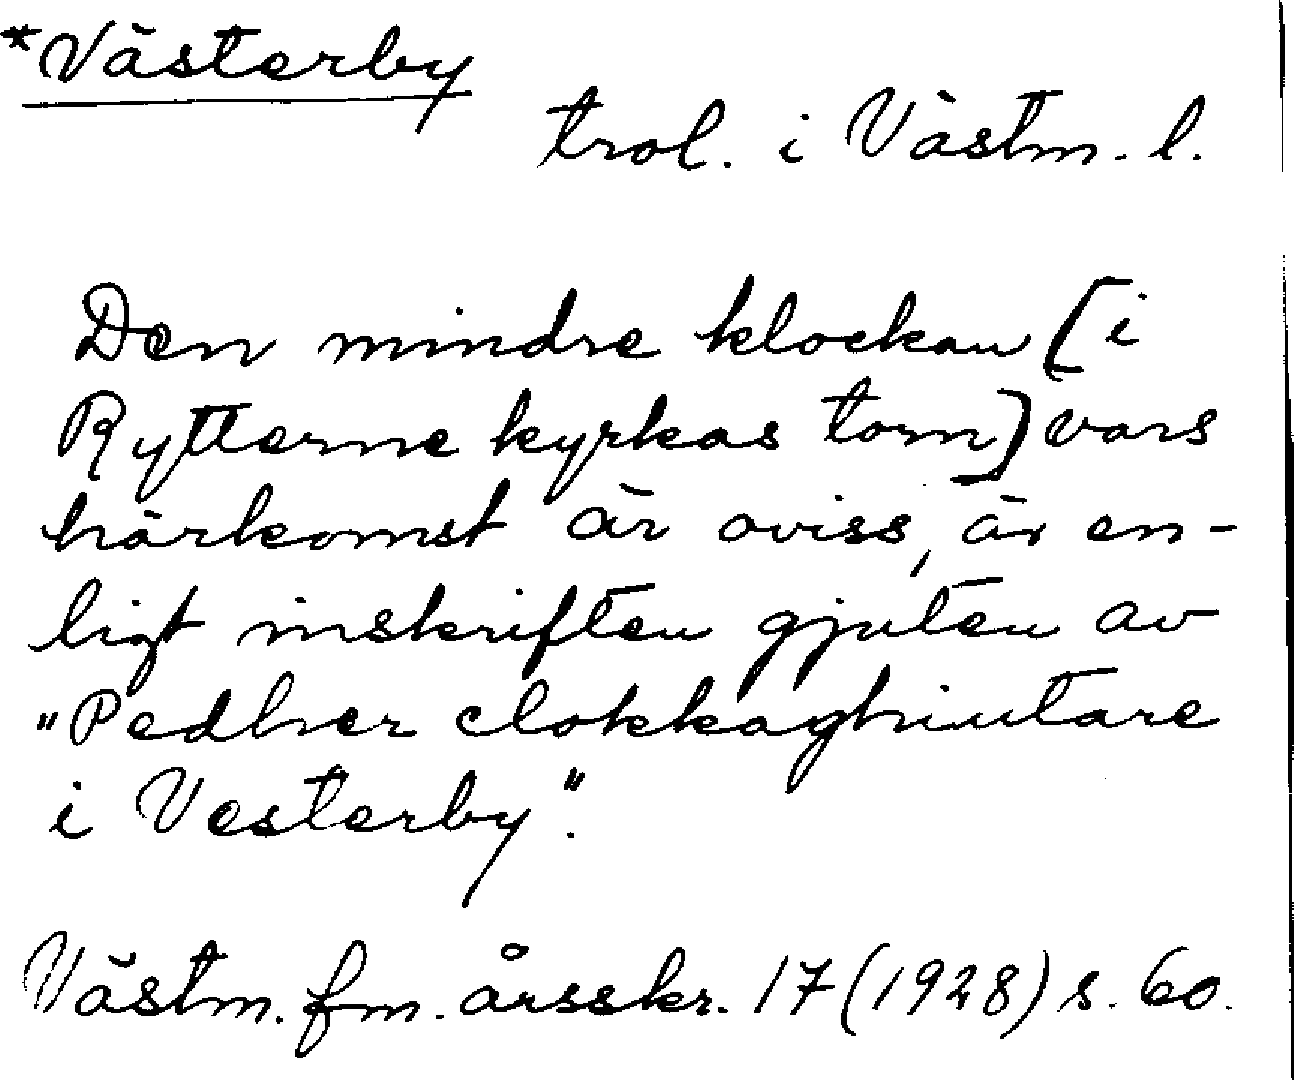 *Västerby
trol. i Västm. l.
Den mindre klockan [i
Rytterne kyrkas torn] vars
härkomst är oviss, är en-
ligt inskriften gjuten av
"Pedher clokkaghiutare
i Vesterby".
Västm. fm. årsskr. 17 (1928) s. 60.